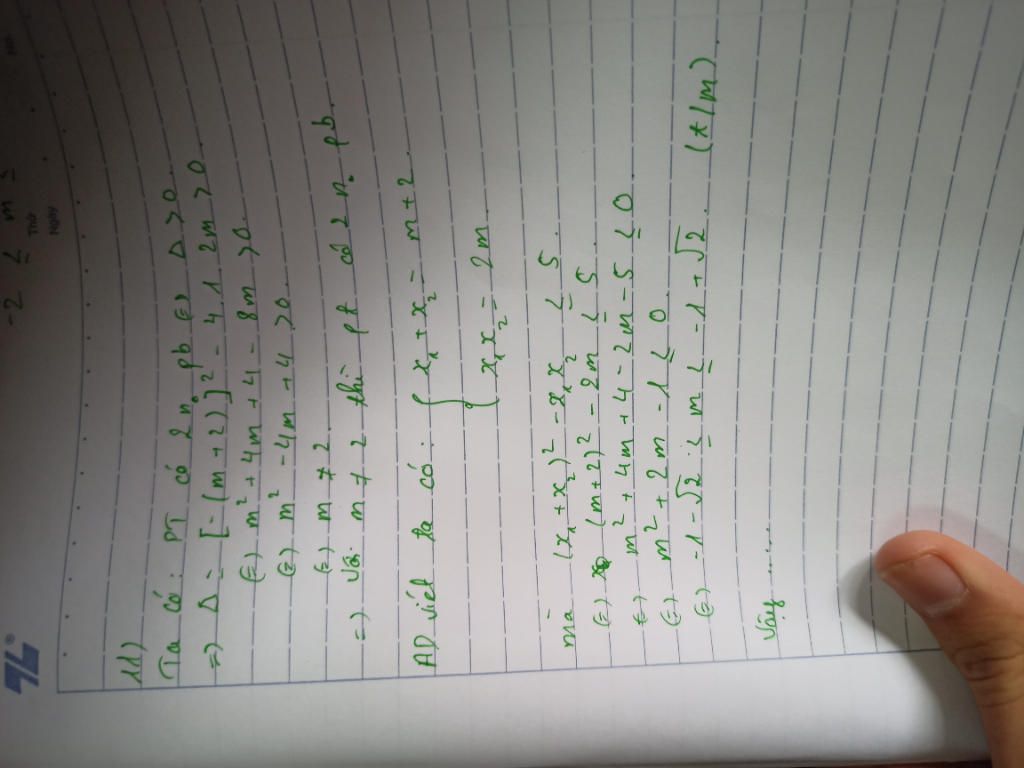 -2 ≤ m ≤
Thứ
Ngày
No.
11)
Ta có: PT có 2 n₀ pb (=) Δ > 0.
=) Δ = [-(m+2)]² - 4.1.2m > 0
(=) m² + 4m + 4 - 8m > 0.
(=) m² - 4m + 4 > 0.
(=) m ≠ 2.
=) Với m ≠ 2 thì pt có 2 n₀ pb.
AD viét ta có: { x₁ + x₂ = m + 2
x₁x₂ = 2m.
mà (x₁ + x₂)² - x₁x₂ ≤ 5
(=) (m+2)² - 2m ≤ 5.
(=) m² + 4m + 4 - 2m - 5 ≤ 0
(=) m² + 2m - 1 ≤ 0
(=) -1 - √2 ≤ m ≤ -1 + √2. (t/m).
Vậy ......